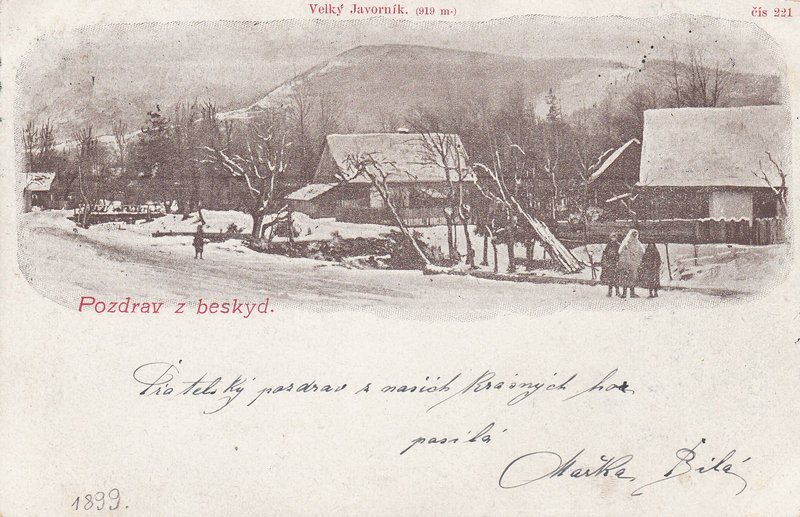 Velký Javorník. (919 m.)
čís 221
Pozdrav z beskyd.
Přatelský pozdrav z našich krásných hor
posílá
Mařka Bílá
1899.